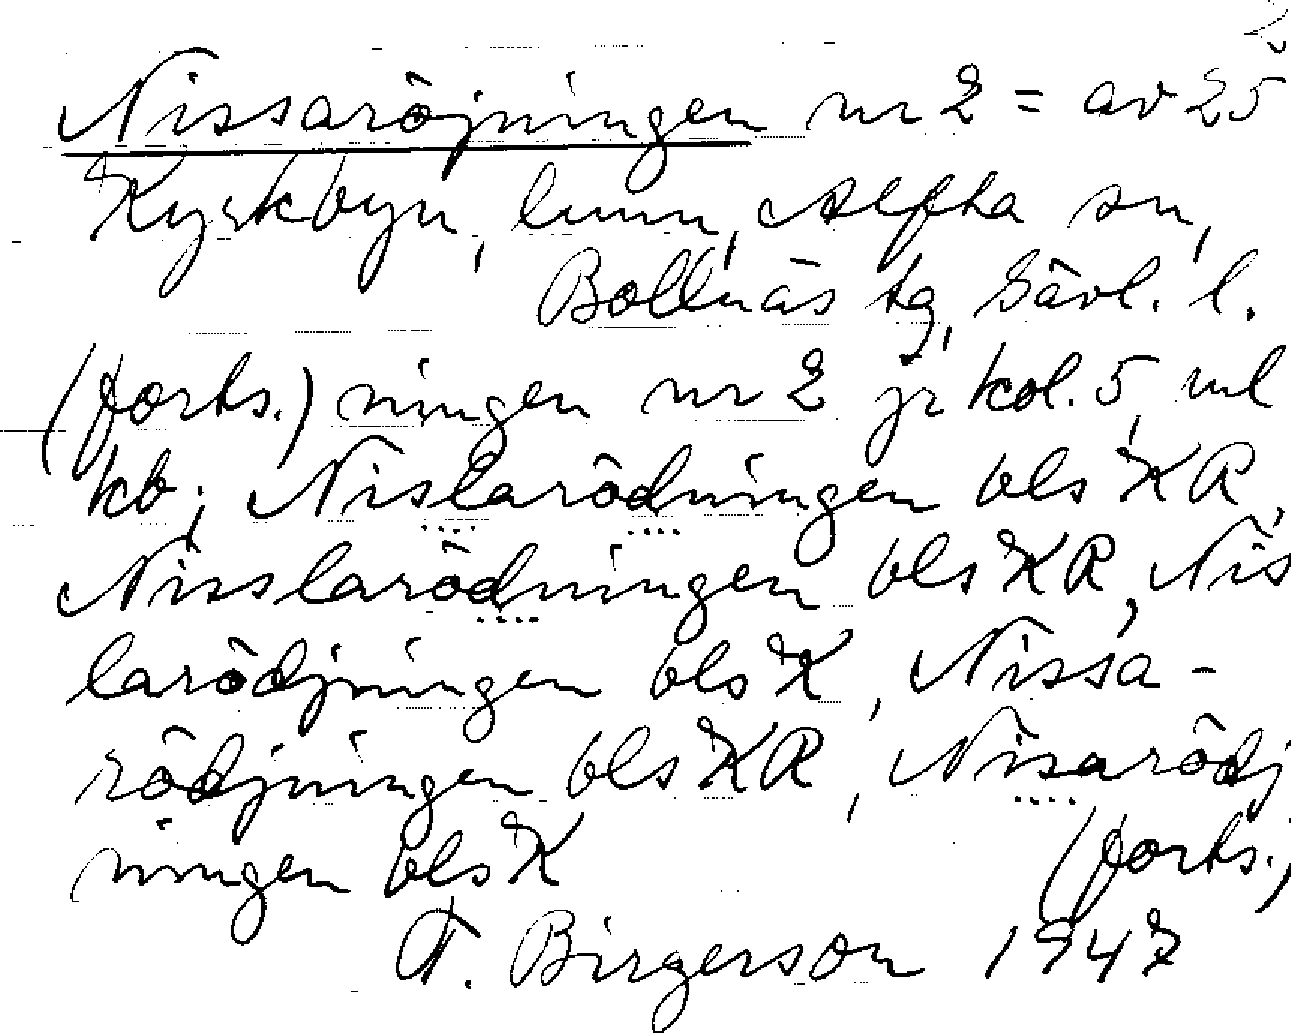 2
Nissaröjningen nr 2 = av 25
Kyrkbyn, lunn, Alfta sn,
Bollnäs tg, Gävl. l.
(forts.) ningen nr 2 jr kol. 5, ml
kb; Nislarödningen bls KR,
Nisslarödningen bls KR, Nis
larödjningen bls K, Nissa-
rödjningen bls KR, Nisarödj
ningen bls K (forts.)
F. Birgerson 1947